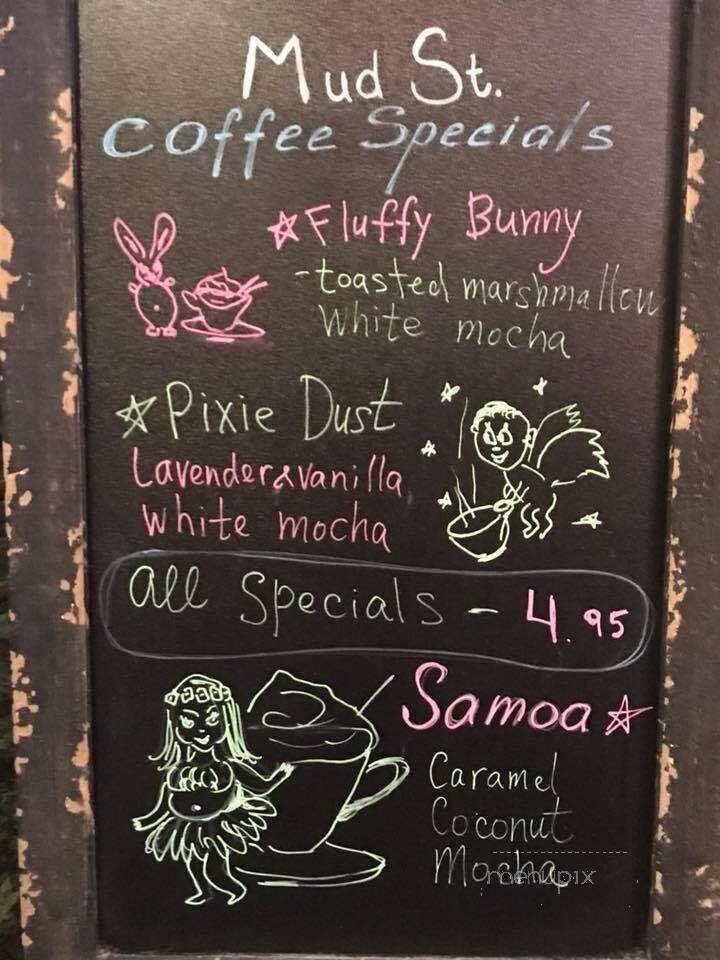 Mud St.
Coffee Specials
☆Fluffy Bunny
-toasted marshmallow
White mocha
☆Pixie Dust
Lavender&vanilla
white mocha
all Specials - 4.95
Samoa☆
Caramel
Coconut
Mocha
menupix